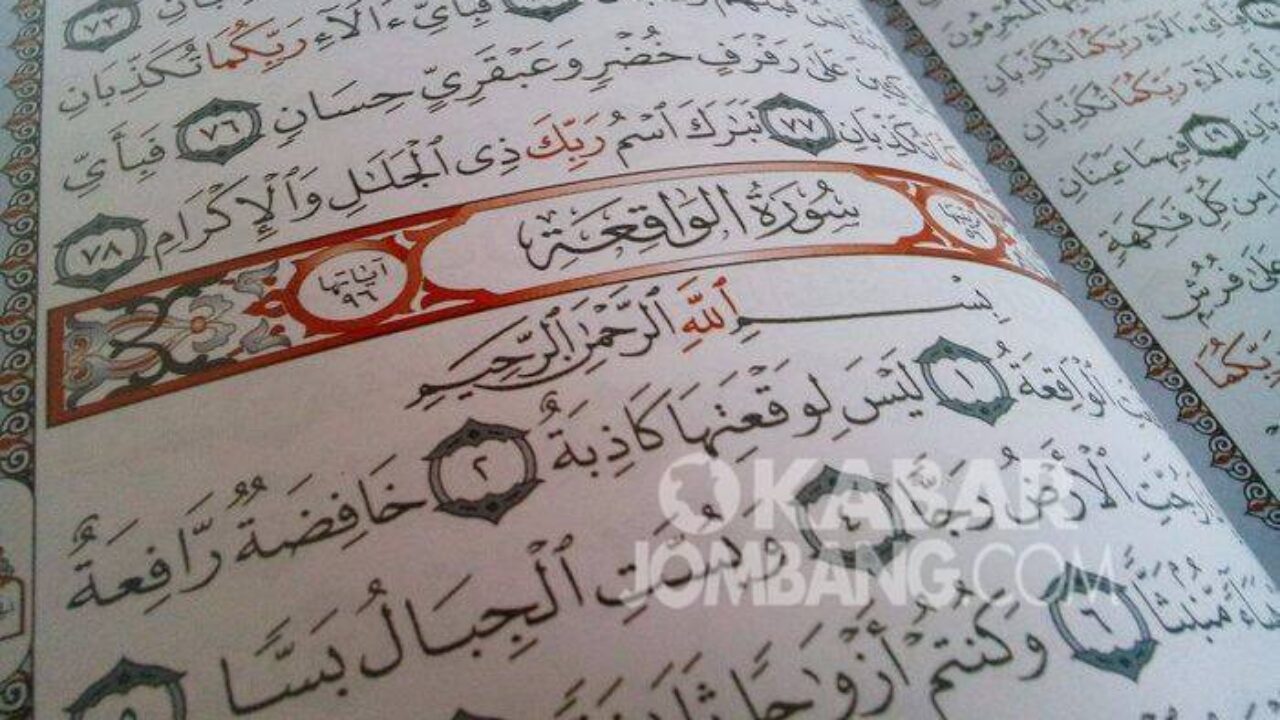 ٧٣
قَبْلَهُمْ
فَبِأَيِّ ءَالَآءِ رَبِّكُمَا تُكَذِّبَانِ
عَلَىٰ رَفْرَفٍ خُضْرٍ وَعَبْقَرِيٍّ حِسَانٍ ٧٦ فَبِأَيِّ
تُكَذِّبَانِ ٧٧ تَبَٰرَكَ ٱسْمُ رَبِّكَ ذِى ٱلْجَلَٰلِ وَٱلْإِكْرَامِ ٧٨
سُورَةُ الوَاقِعَةِ
آيَاتُهَا ٩٦
بِسْمِ ٱللَّهِ ٱلرَّحْمَٰنِ ٱلرَّحِيمِ
ٱلْوَاقِعَةُ ١ لَيْسَ لِوَقْعَتِهَا كَاذِبَةٌ ٢ خَافِضَةٌ رَّافِعَةٌ
رُجَّتِ ٱلْأَرْضُ رَجًّا ٤ وَبُسَّتِ ٱلْجِبَالُ بَسًّا ٥
مُّنۢبَثًّا ٦ وَكُنتُمْ أَزْوَٰجًا ثَلَٰثَةً
ٱلْمُجْرِمُونَ
فَبِأَيِّ ءَالَآءِ رَبِّكُمَا تُكَذِّبَانِ
ءَالَآءِ رَبِّكُمَا تُكَذِّبَانِ
فِيهِمَا عَيْنَانِ
مِن كُلِّ فَٰكِهَةٍ
عَلَىٰ فُرُشٍ
رَبِّكُمَا
KABAR
JOMBANG.COM